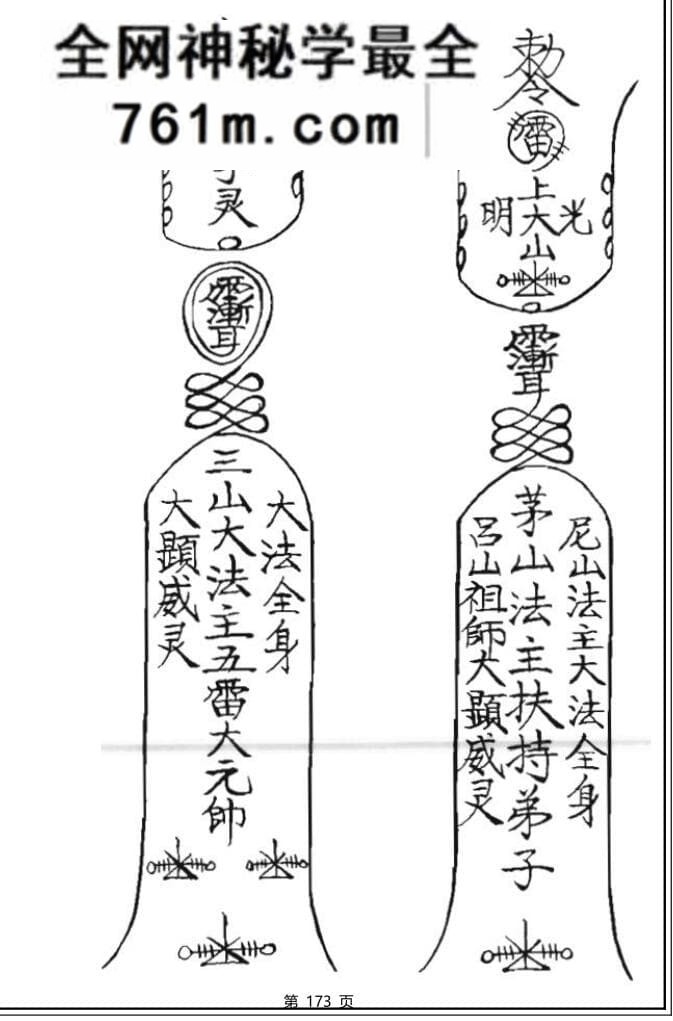 全网神秘学最全
761m.com
灵
大法全身
三山大法主五雷大元帥
大顕威灵
勅令
雷
上大山
光
明
尼山法主大法全身
茅山法主扶持弟子
呂山祖師大顕威灵
第 173 页